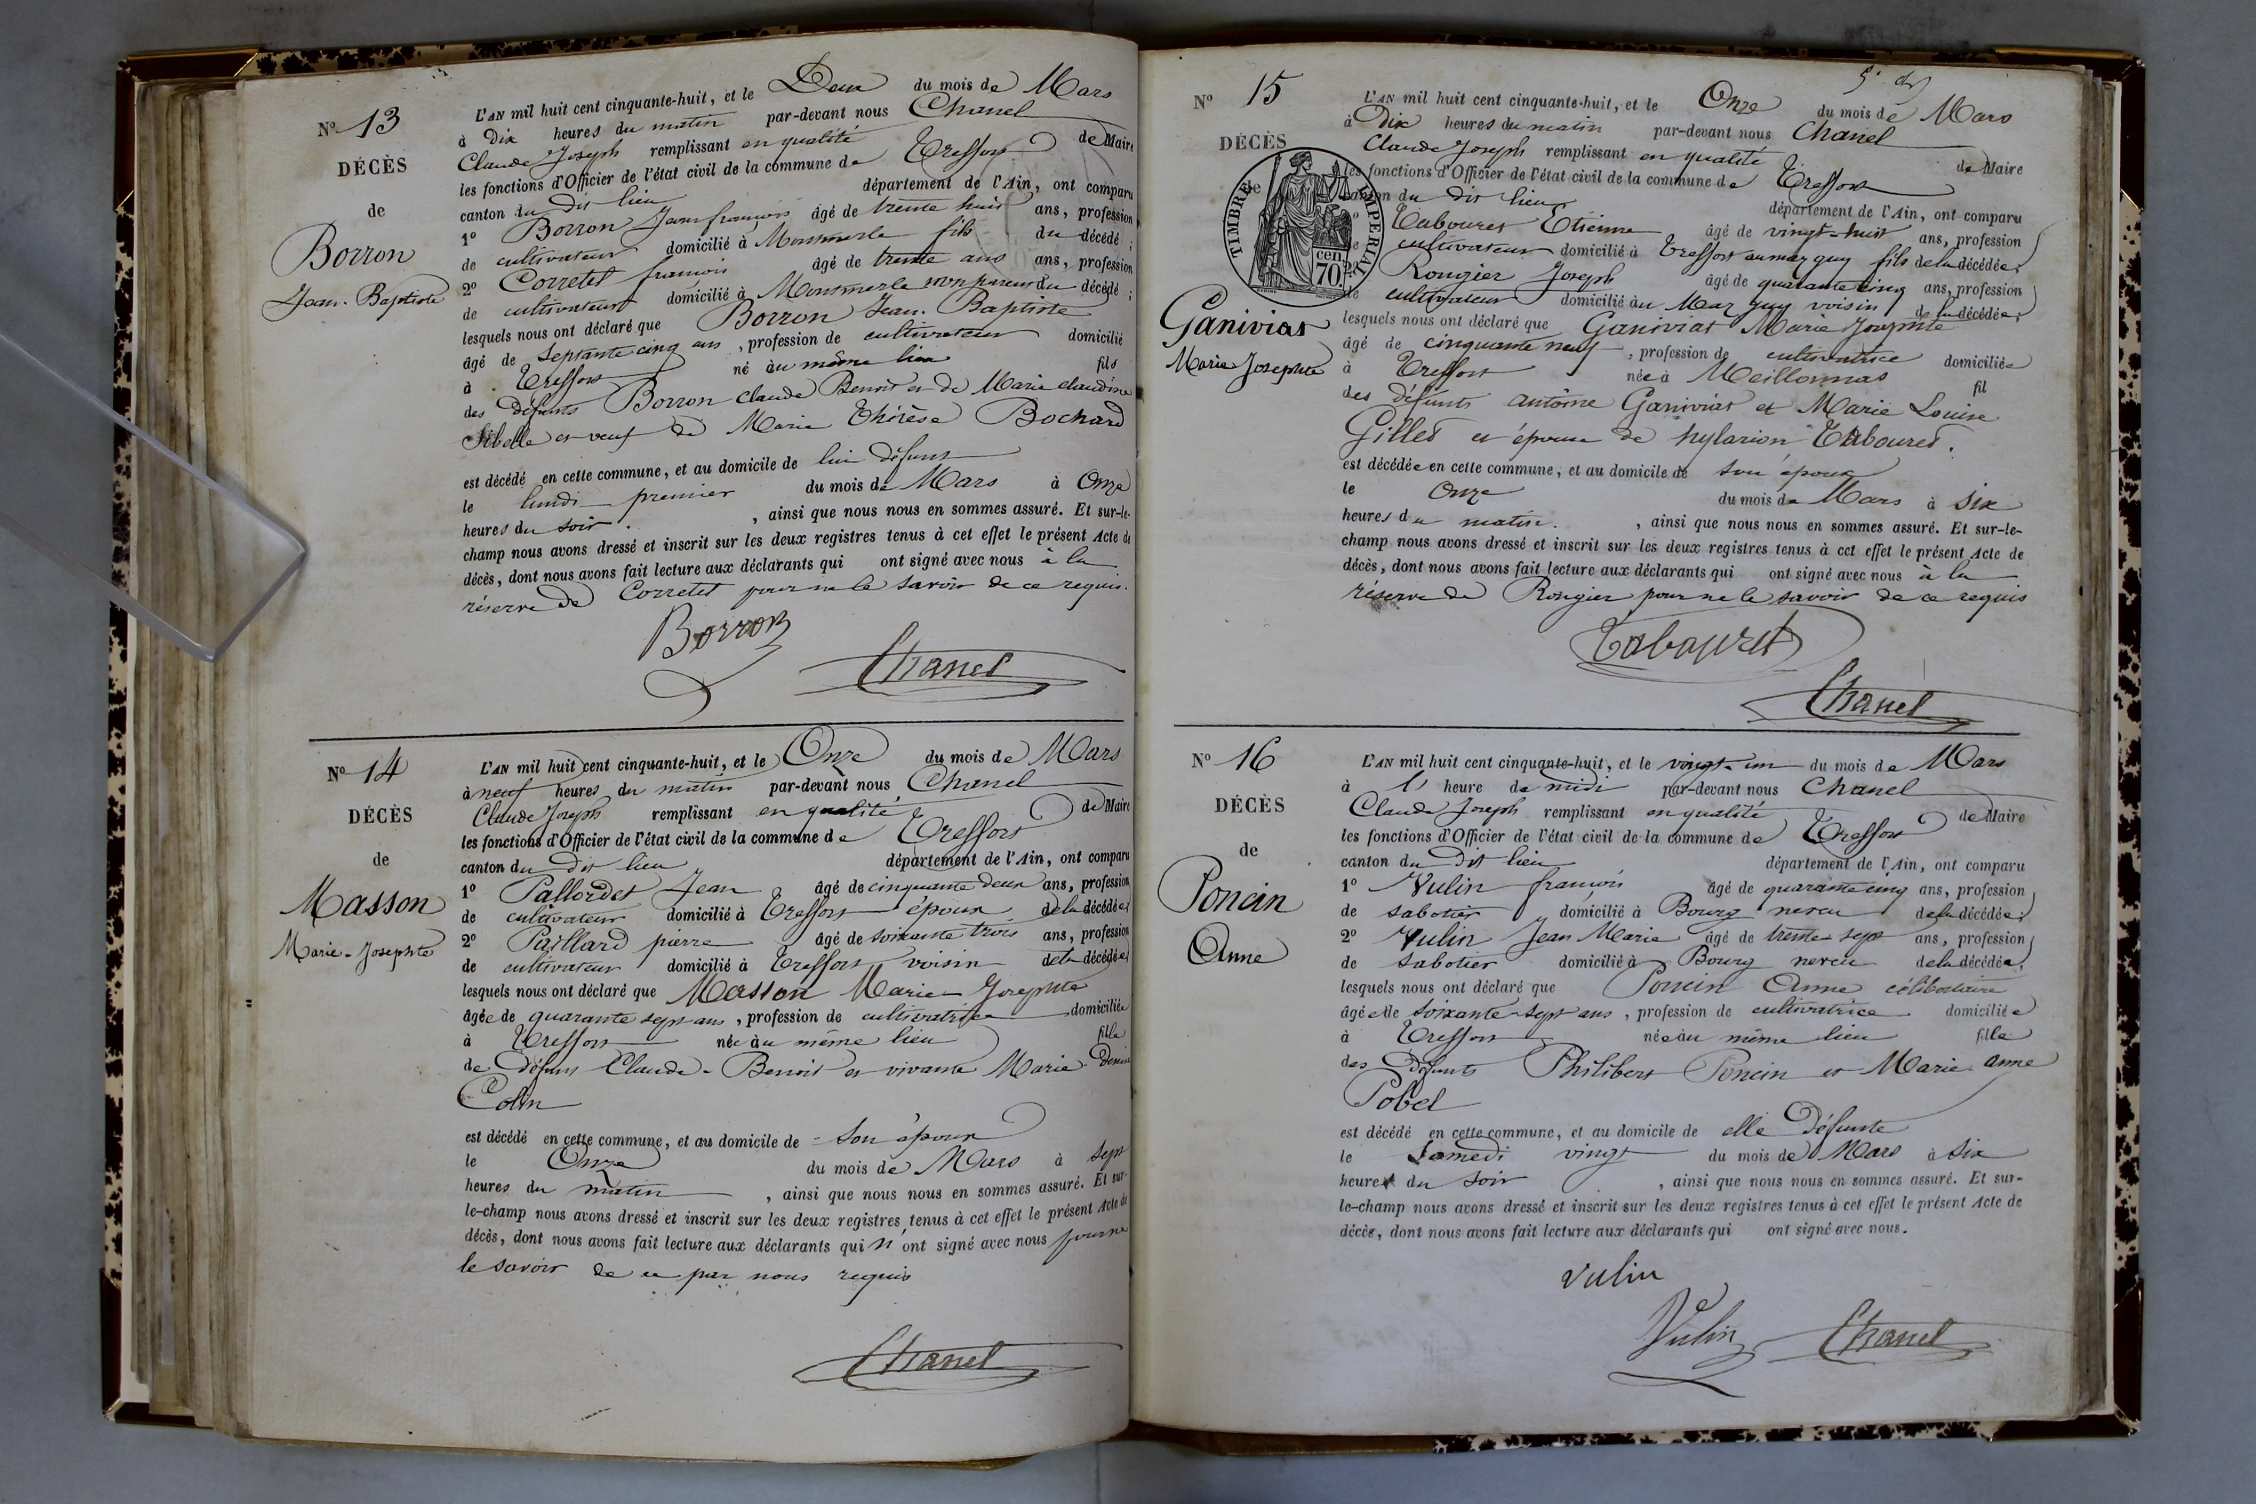 N° 13
DÉCÈS
de
Borron
Jean-Baptiste
L'AN mil huit cent cinquante-huit, et le Deux du mois de Mars
à Dix heures du matin par-devant nous Chanel
Claude Joseph remplissant en qualité de Maire
les fonctions d'Officier de l'état civil de la commune de Treffort
canton du dit lieu département de l'Ain, ont comparu
1° Borron Jean françois âgé de trente huit ans, profession
de cultivateur domicilié à Montmerle fils du décédé ;
2° Corretet françois âgé de trente ans ans, profession
de cultivateur domicilié à Montmerle non parent du décédé ;
lesquels nous ont déclaré que Borron Jean-Baptiste
âgé de septante cinq ans, profession de cultivateur domicilié
à Treffort né au même lieu fils
des défunts Borron Claude Benoit et de Marie Claudine
Sibelle et veuf de Marie Thérèse Bochard
est décédé en cette commune, et au domicile de lui défunt
le lundi premier du mois de Mars à Onze
heures du soir. , ainsi que nous nous en sommes assuré. Et sur-le-
champ nous avons dressé et inscrit sur les deux registres tenus à cet effet le présent Acte de
décès, dont nous avons fait lecture aux déclarants qui ont signé avec nous à la
réserve de Corretet pour ne le savoir de ce requis.
Borron
Chanel
N° 14
DÉCÈS
de
Masson
Marie-Josephte
L'AN mil huit cent cinquante-huit, et le Onze du mois de Mars
à neuf heures du matin par-devant nous Chanel
Claude Joseph remplissant en qualité de Maire
les fonctions d'Officier de l'état civil de la commune de Treffort
canton du dit lieu département de l'Ain, ont comparu
1° Pallordet Jean âgé de cinquante deux ans, profession
de cultivateur domicilié à Treffort époux de la décédée ;
2° Paillard pierre âgé de soixante trois ans, profession
de cultivateur domicilié à Treffort voisin de la décédée ;
lesquels nous ont déclaré que Masson Marie-Josephte
âgée de quarante sept ans, profession de cultivatrice domiciliée
à Treffort née au même lieu fille
de défunt Claude-Benoit et vivante Marie-
Colin
est décédé en cette commune, et au domicile de son époux
le Onze du mois de Mars à sept
heures du matin , ainsi que nous nous en sommes assuré. Et sur-
le-champ nous avons dressé et inscrit sur les deux registres tenus à cet effet le présent Acte de
décès, dont nous avons fait lecture aux déclarants qui n'ont signé avec nous pour ne
le savoir de ce par nous requis
Chanel
N° 15
DÉCÈS
TIMBRE IMPERIAL
70 cen
Ganiviat
Marie Josephte
L'AN mil huit cent cinquante-huit, et le Onze du mois de Mars
à Dix heures du matin par-devant nous Chanel
Claude Joseph remplissant en qualité de Maire
les fonctions d'Officier de l'état civil de la commune de Treffort
canton du dit lieu département de l'Ain, ont comparu
Tabouret Etienne âgé de vingt-huit ans, profession
cultivateur domicilié à Treffort au maz guy fils de la décédée ;
2° Rougier Joseph âgé de quarante cinq ans, profession
de cultivateur domicilié au Maz guy voisin de la décédée ;
lesquels nous ont déclaré que Ganiviat Marie Josephte
âgé de cinquante neuf, profession de cultivatrice domiciliée
à Treffort née à Meillonnas fil
des défunts antoine Ganiviat et Marie Louise
Gilled et épouse de hylarion Tabouret.
est décédée en cette commune, et au domicile de son époux
le Onze du mois de Mars à six
heures du matin. , ainsi que nous nous en sommes assuré. Et sur-le-
champ nous avons dressé et inscrit sur les deux registres tenus à cet effet le présent Acte de
décès, dont nous avons fait lecture aux déclarants qui ont signé avec nous à la
réserve de Rougier pour ne le savoir de ce requis
Tabouret
Chanel
N° 16
DÉCÈS
de
Poncin
Anne
L'AN mil huit cent cinquante-huit, et le vingt-un du mois de Mars
à l' heure de midi par-devant nous Chanel
Claude Joseph remplissant en qualité de Maire
les fonctions d'Officier de l'état civil de la commune de Treffort
canton du dit lieu département de l'Ain, ont comparu
1° Vulin françois âgé de quarante cinq ans, profession
de sabotier domicilié à Bourg neveu de la décédée ;
2° Vulin Jean Marie âgé de trente-sept ans, profession
de sabotier domicilié à Bourg neveu de la décédée ;
lesquels nous ont déclaré que Poncin Anne célibataire
âgé elle soixante-sept ans, profession de cultivatrice domiciliée
à Treffort née au même lieu fille
des défunts Philibert Poncin et Marie-anne
Pobel
est décédé en cette commune, et au domicile de elle Défunte
le samedi vingt du mois de Mars à six
heures du soir , ainsi que nous nous en sommes assuré. Et sur-
le-champ nous avons dressé et inscrit sur les deux registres tenus à cet effet le présent Acte de
décès, dont nous avons fait lecture aux déclarants qui ont signé avec nous.
Vulin
Vulin
Chanel